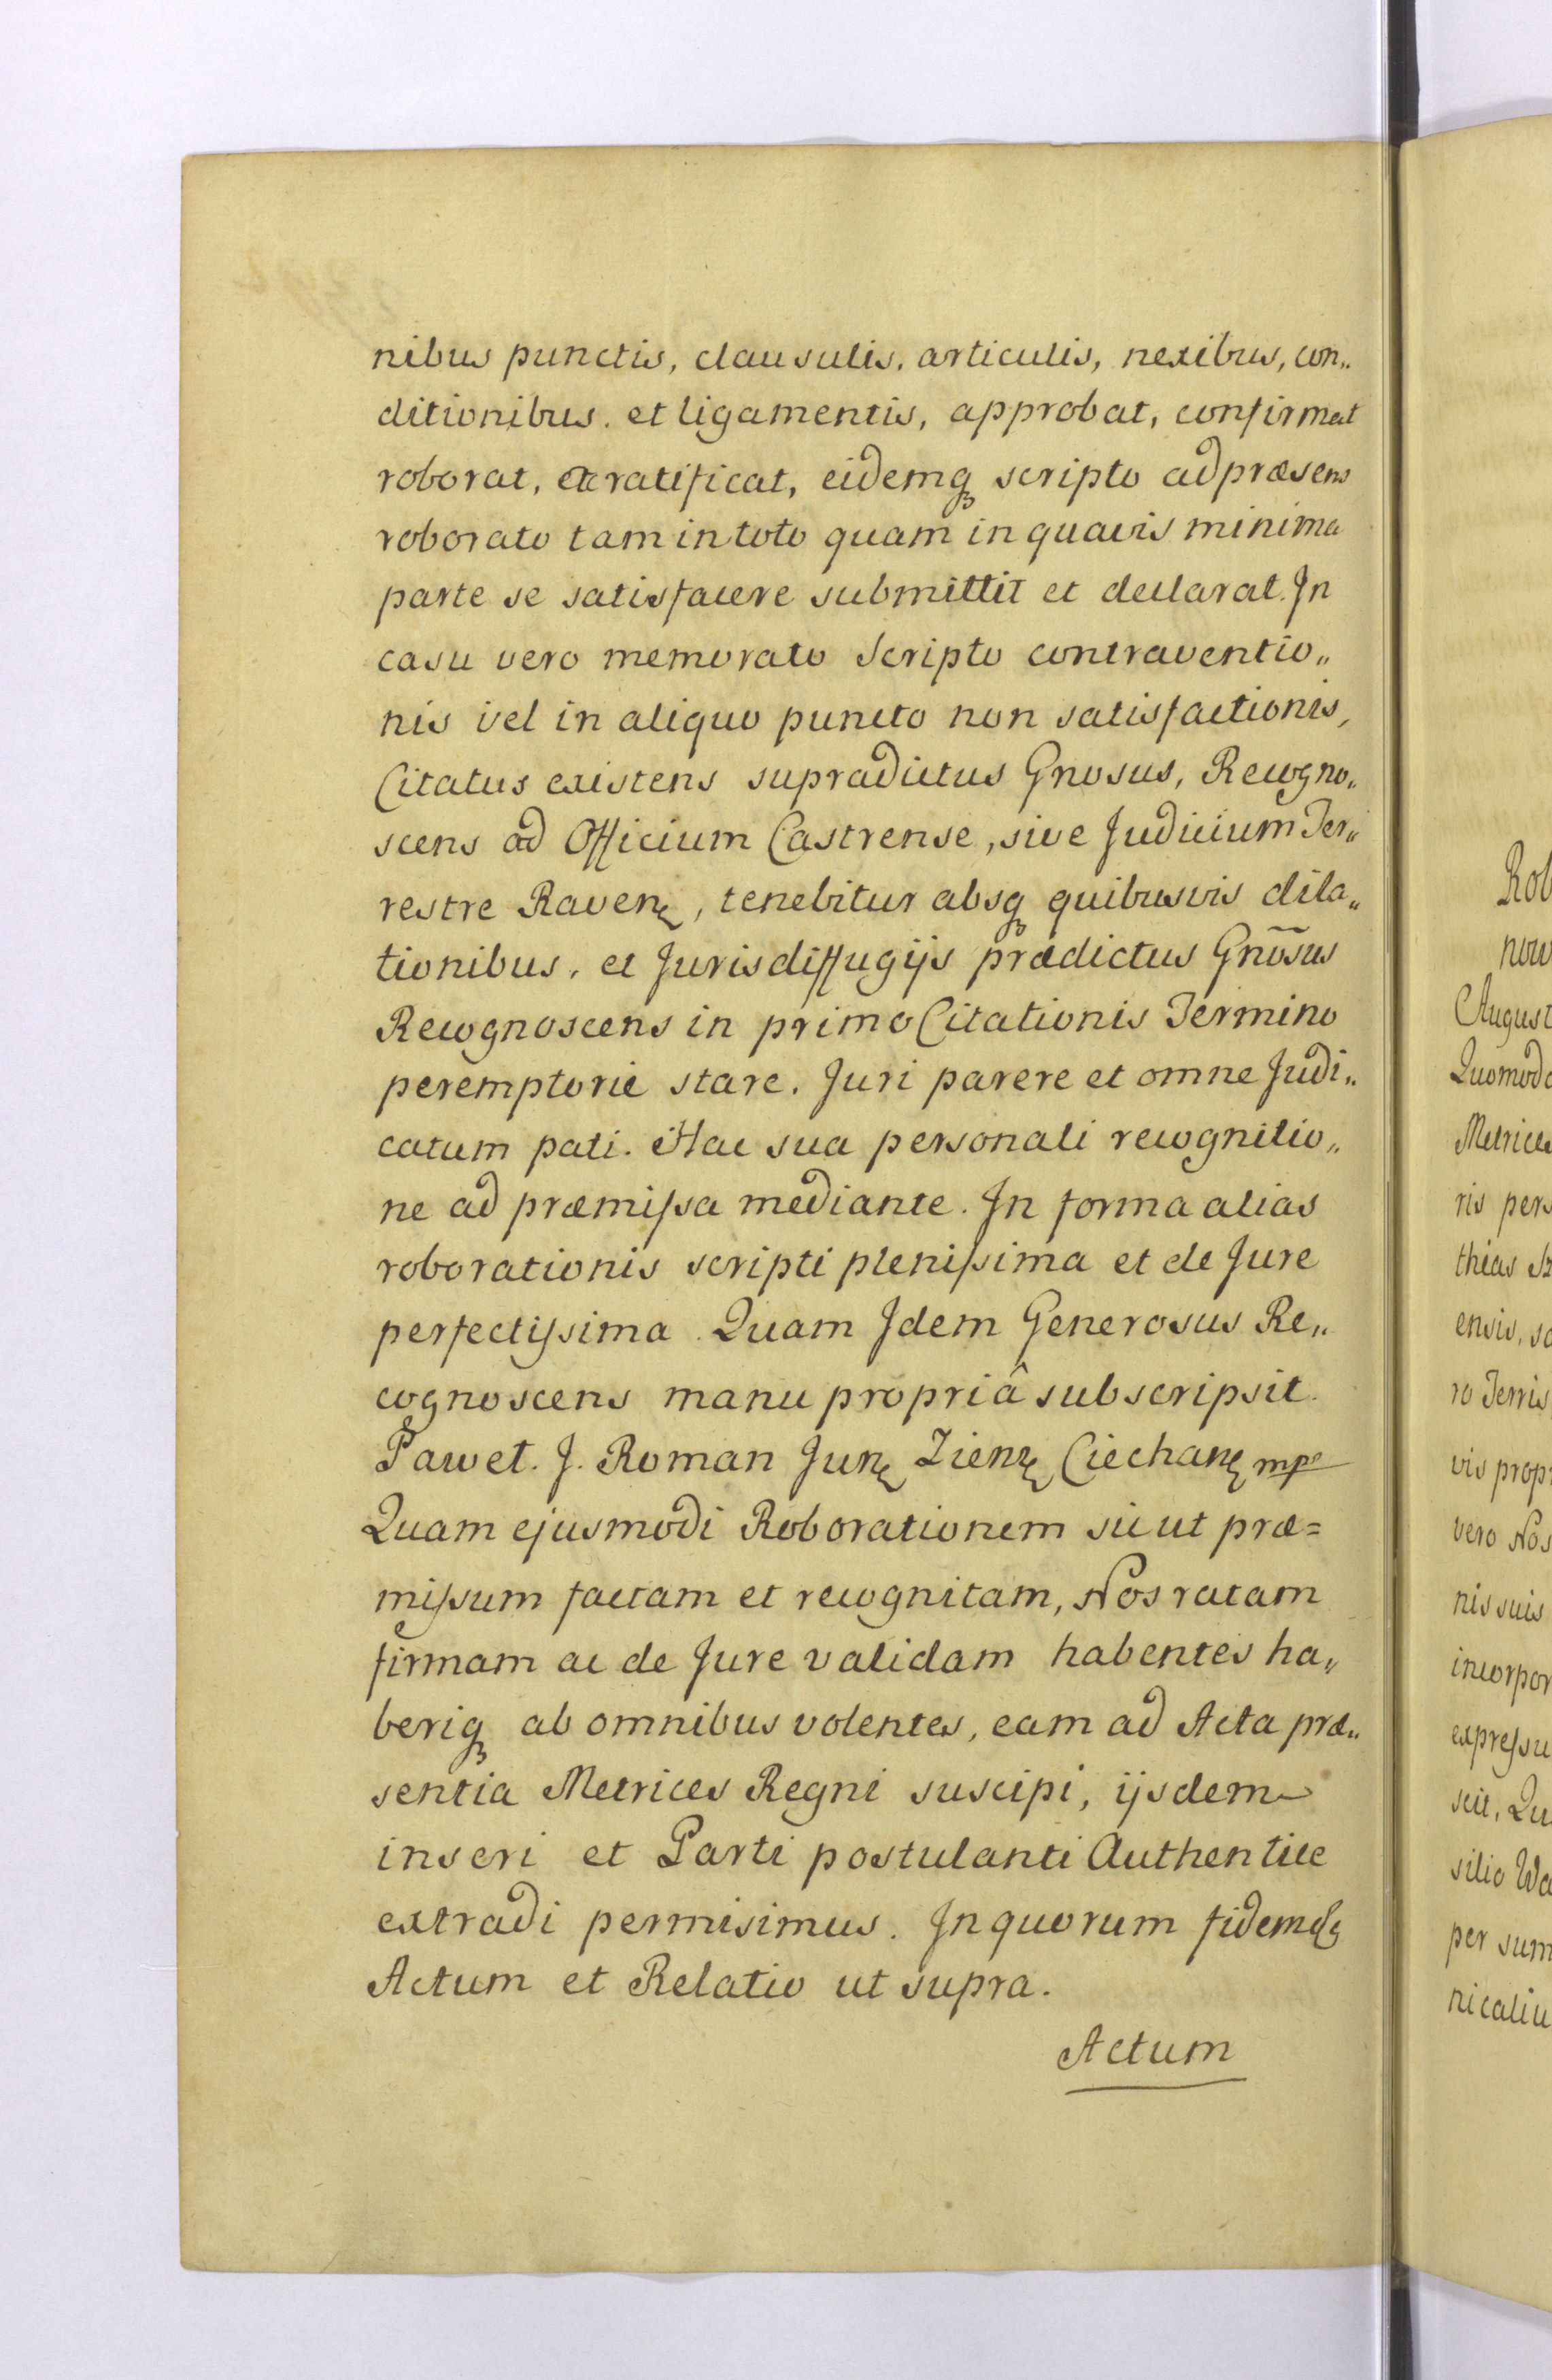 nibus punctis, clausulis, articulis, nexibus, con„
ditionibus. et ligamentis, approbat, confirmat
roborat, et ratificat, eidemq scripto ad præsens
roborato tam in toto quam in quavis minima
parte se satisfacere submittit et declarat. In
casu vero memorato Scripto contraventio„
nis vel in aliquo puncto non satisfactionis,
Citatus existens supradictus Gnosus, Recogno„
scens ad Officium Castrense, sive Judicium Ter„
restre Raven, tenebitur absq quibusvis dila„
tionibus, et Juris diffugijs prædictus Gnōsus
Recognoscens in primo Citationis Termino
peremptorie stare. Juri parere et omne Judi„
catum pati. Hac sua personali recognitio„
ne ad præmissa mediante. In forma alias
roborationis scripti plenissima et de Jure
perfectissima. Quam Idem Generosus Re„
cognoscens manu propriâ subscripsit.
Pawet. J. Roman Jun Zien Ciechan mp
Quam ejusmodi Roborationem sicut præ=
missum factam et recognitam, Nos ratam
firmam ac de Jure validam habentes ha„
beriq ab omnibus volentes, eam ad Acta præ„
sentia Metrices Regni suscipi, ijsdem
inseri et Parti postulanti Authentice
extradi permisimus. In quorum fidem
Actum et Relatio ut supra.
Actum
Rob
now
August
Quomodo
Metrices
ris pers
thias
ensis, sa
ro Terris
vis propr
vero Nos
nis suis
incorpor
expressu
scit, Qu
silio Wa
per sum
nicaliu